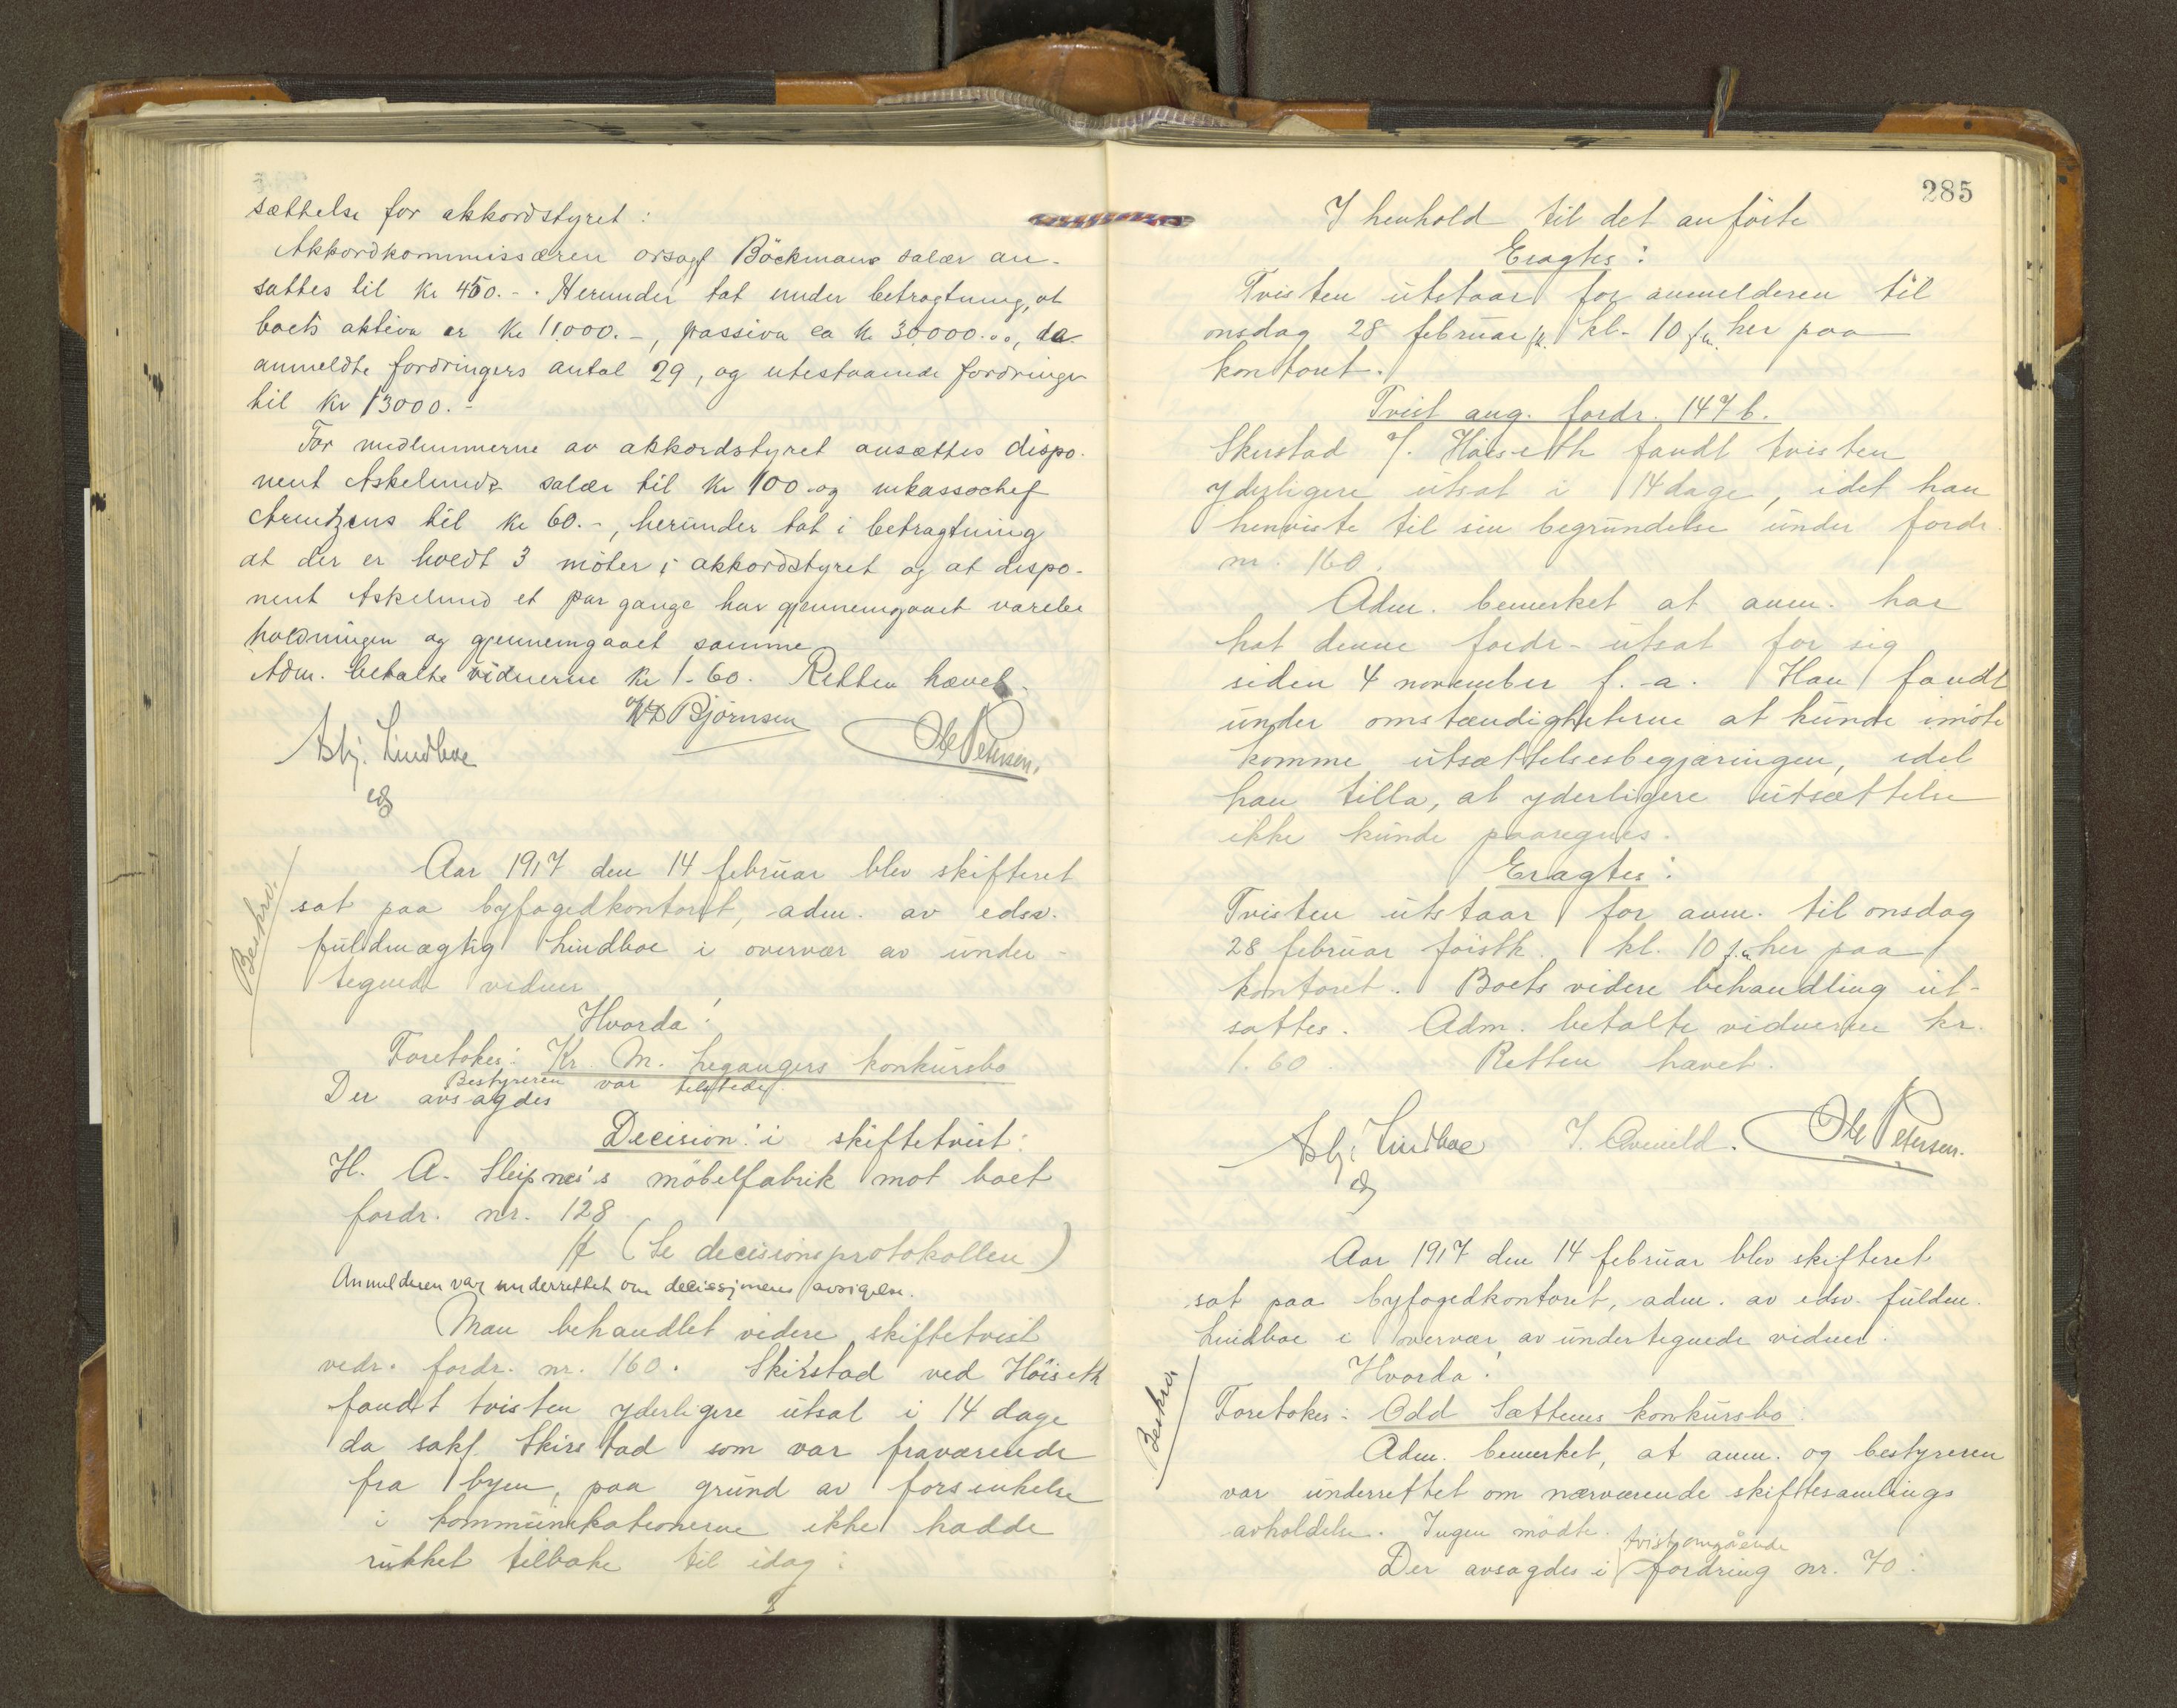 sættelse for akkordstyret:
Akkordkommissæren orsagf Böckmans salær an-
sattes til kr 450.-. Herunder tat under betragtning, at
boets aktiva er kr 11000.-, passiva ca kr 30.000..., da
anmeldte fordringers antal 29, og utestaaende fordringer
til kr 13000.-
For medlemmerne av akkordstyret ansættes dispo-
nent Askelunds salær til kr 100.- og inkassochef
Arentzens til kr 60.-, herunder tat i betragtning
at der er holdt 3 möter i akkordstyret og at dispo-
nent Askelund et par gange har gjennemgaaet varebe
holdningen og gjennemgaaet samme
Adm. betalte vidnerne kr 1.60. Retten hævet.
Asbj. Lindboe
K D Bjørnsen
Ole Petersen.
eds
Beskrv.
Aar 1917 den 14 februar blev skifteret
sat paa byfogedkontoret, adm. av edsv.
fuldmægtig Lindboe i overvær av under-
tegnede vidner
Hvorda!
Foretokes: Kr. M. Legangers konkursbo
Bestyreren var tilstede
Der avsagdes
Decision i skiftetvist:
H. A. Sleipnes's möbelfabrik mot boet
fordr. nr. 128
(Se decisionsprotokollen)
Anmelderen var underrettet om decissjonens avsigelse.
Man behandlet videre skiftetvist
vedr. fordr. nr. 160. Skirstad ved Höiseth
fandt tvisten yderligere utsat i 14 dage
da sakf. Skirstad som var fraværende
fra byen, paa grund av forsinkelse
i kommunikationerne ikke hadde
rukket tilbake til idag:
285
I henhold til det anförte
Eragtes:
Tvisten utstaar for anmelderen til
onsdag 28 februar fk. kl. 10 fm. her paa
kontoret.
Tvist ang. fordr. 147 b.
Skirstad v/. Höiseth fandt tvisten
yderligere utsat i 14 dage, idet han
henviste til sin begrundelse under fordr.
nr. 160.
Adm. bemerket at anm. har
hat denne fordr. utsat for sig
siden 4 november f. a. Han fandt
under omstændigheterne at kunde imöte
komme utsættelsesbegjæringen, idet
han tilla, at yderligere utsættelse
ikke kunde paaregnes.
Eragtes:
Tvisten utstaar for anm. til onsdag
28 februar förstk. kl. 10 f.m. her paa
kontoret. Boets videre behandling ut-
sattes. Adm. betalte vidnerne kr.
1.60. Retten hævet.
Asbj. Lindboe
Ole Petersen.
eds
Aar 1917 den 14 februar blev skifteret
sat paa byfogedkontoret, adm. av edsv. fuldm.
Lindboe i overvær av undertegnede vidner.
Hvorda!
Beskrv
Foretokes: Odd Sættems konkursbo.
Adm. bemerket, at anm. og bestyreren
var underrettet om nærværende skiftesamlings
avholdelse. Ingen mödte.
tvist omgående
Der avsagdes i fordring nr. 70: